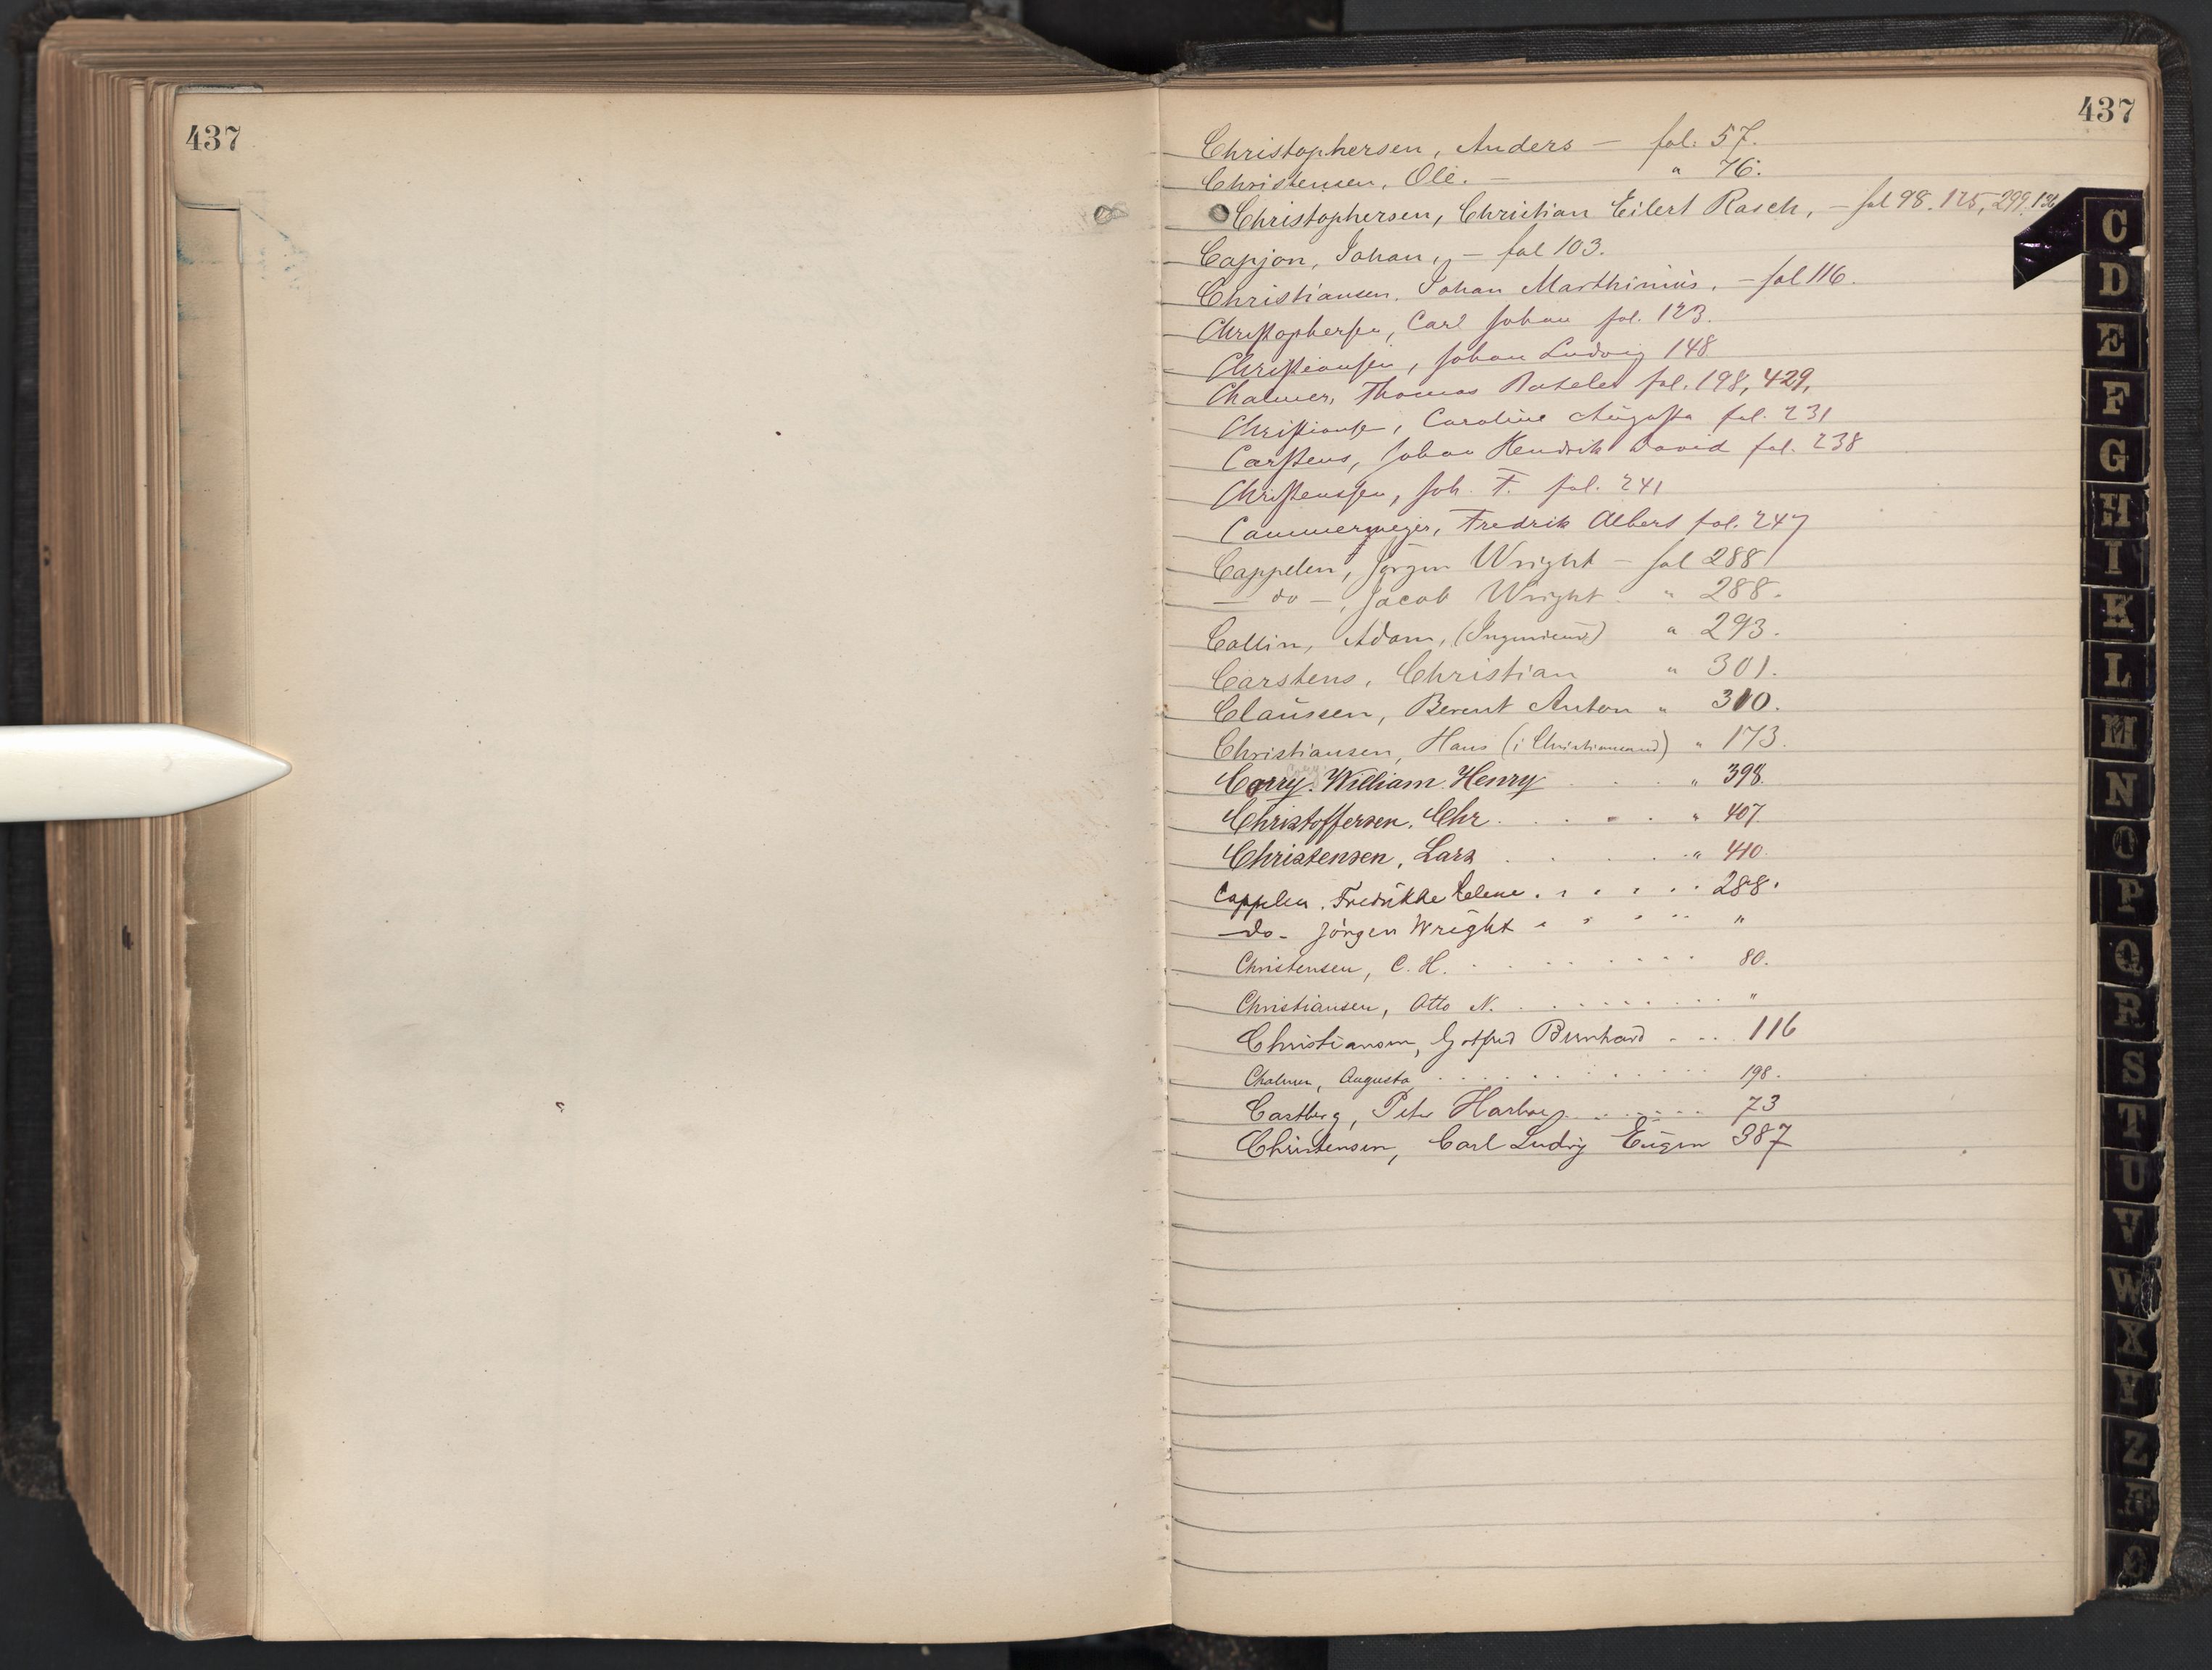 437
437
Christophersen, Anders — fol: 57.
Christensen, Ole. — " 76.
Christophersen, Christian Eilert Rasch, — fol 98. 175, 299, 136
Capjon, Johan, — fol 103.
Christiansen, Johan Marthinius, — fol 116.
Christophersen, Carl Johan fol. 123.
Christiansen, Johan Ludvig 148
Chalmer, Thomas fol. 198, 429,
Christiansen, Caroline Augusta fol. 231
Carstens, Johan Hendrik David fol. 238
Christenssen, Joh. F. fol. 241
Cammermejer, Fredrik Albert fol. 247
Cappelen, Jørgen Wright — fol 288
— do —, Jacob Wright " 288.
Collin, Adam, (Ingeniør) " 293.
Carstens, Christian " 301.
Claussen, Berent Anton " 310.
Christiansen, Hans (i Christianssand) " 173.
Corry. William Henry " 398.
Christoffersen, Chr. " 407
Christensen, Lars " 410.
Cappelen, Fredrikke Helene. 288.
—do— Jörgen Wright "
Christensen, C. H. 80.
Christiansen, Otto N. "
Christiansen, Gotfred Bernhard 116
Chalmer, Augusta 198.
Castberg, Peter Harboe 73
Christensen, Carl Ludvig Eugen 387
C
D
E
F
G
H
I
K
L
M
N
O
P
Q
R
S
T
U
V
W
X
Y
Z
Æ
Ø